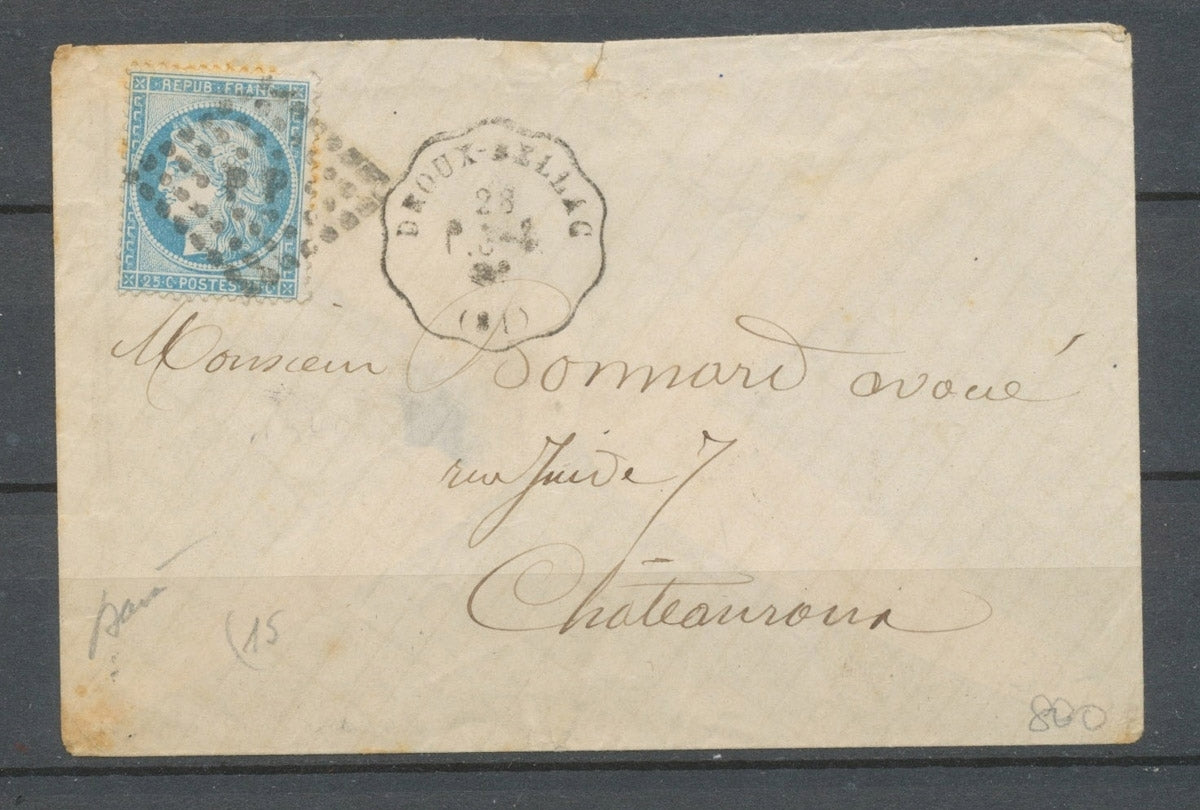 REPUB·FRANC
25·C·POSTES
DROUX-BELLAC
28
Monsieur Bonnard avoué
rue 7
Châteauroux
(15
800